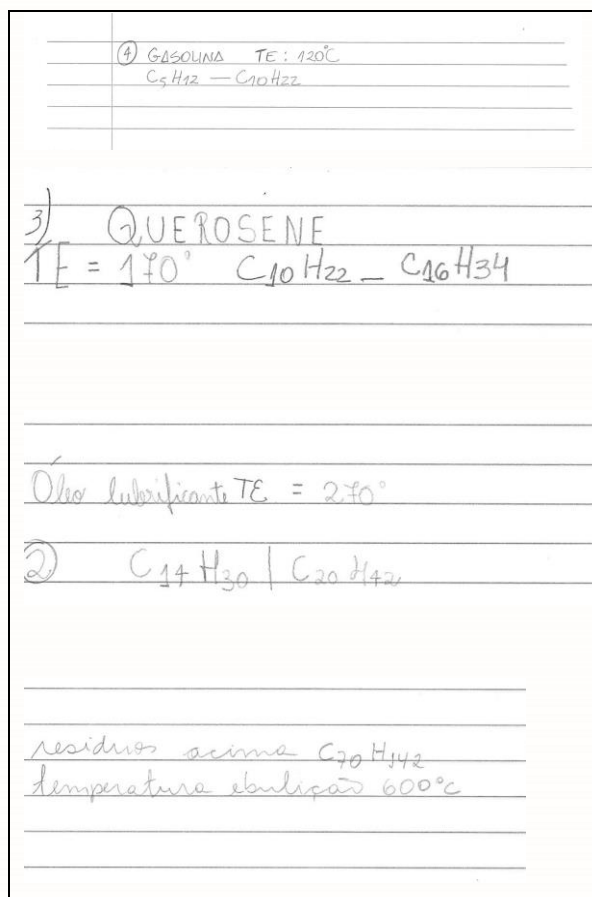 ④ GASOLINA TE: 120°C
C5H12 — C10H22
3) QUEROSENE
TE = 170° C10H22 – C16H34
Óleo lubrificante TE = 270°
② C14H30 | C20H42
residuos acima C70H142
temperatura ebulição 600°C